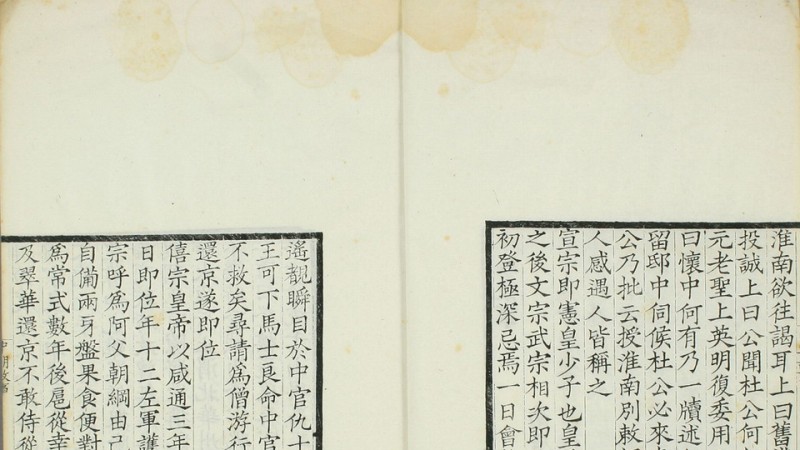 淮南欲往謁耳上曰舊
投誠上曰公聞杜公何
元老聖上英明復委用
曰懷中何有乃一牘述
留邸中伺候杜公必來
公乃批云授淮南別敕
人感遇人皆稱之
宣宗即憲皇少子也皇
之後文宗武宗相次即
初登極深忌焉一日會
遥覩瞬目於中官仇士
王可下馬士良命中官
不救矣尋請為僧游行
還京遂即位
僖宗皇帝以咸通三年
日即位年十二左軍護
宗呼為阿父朝綱由己
自備兩牙盤果食便對
為常式數年後扈從幸
及翠華還京不敢侍從